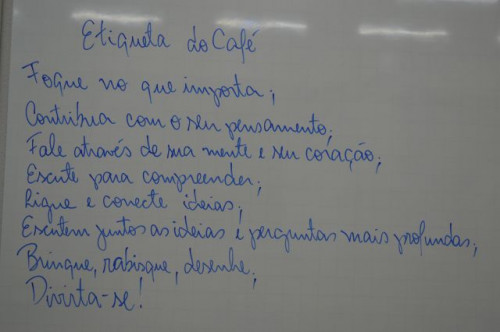 Etiqueta do Café
Foque no que importa;
Contribua com o seu pensamento;
Fale através de sua mente e seu coração;
Escute para compreender;
Ligue e conecte ideias;
Escutem juntos as ideias e perguntas mais profundas;
Brinque, rabisque, desenhe;
Divirta-se!